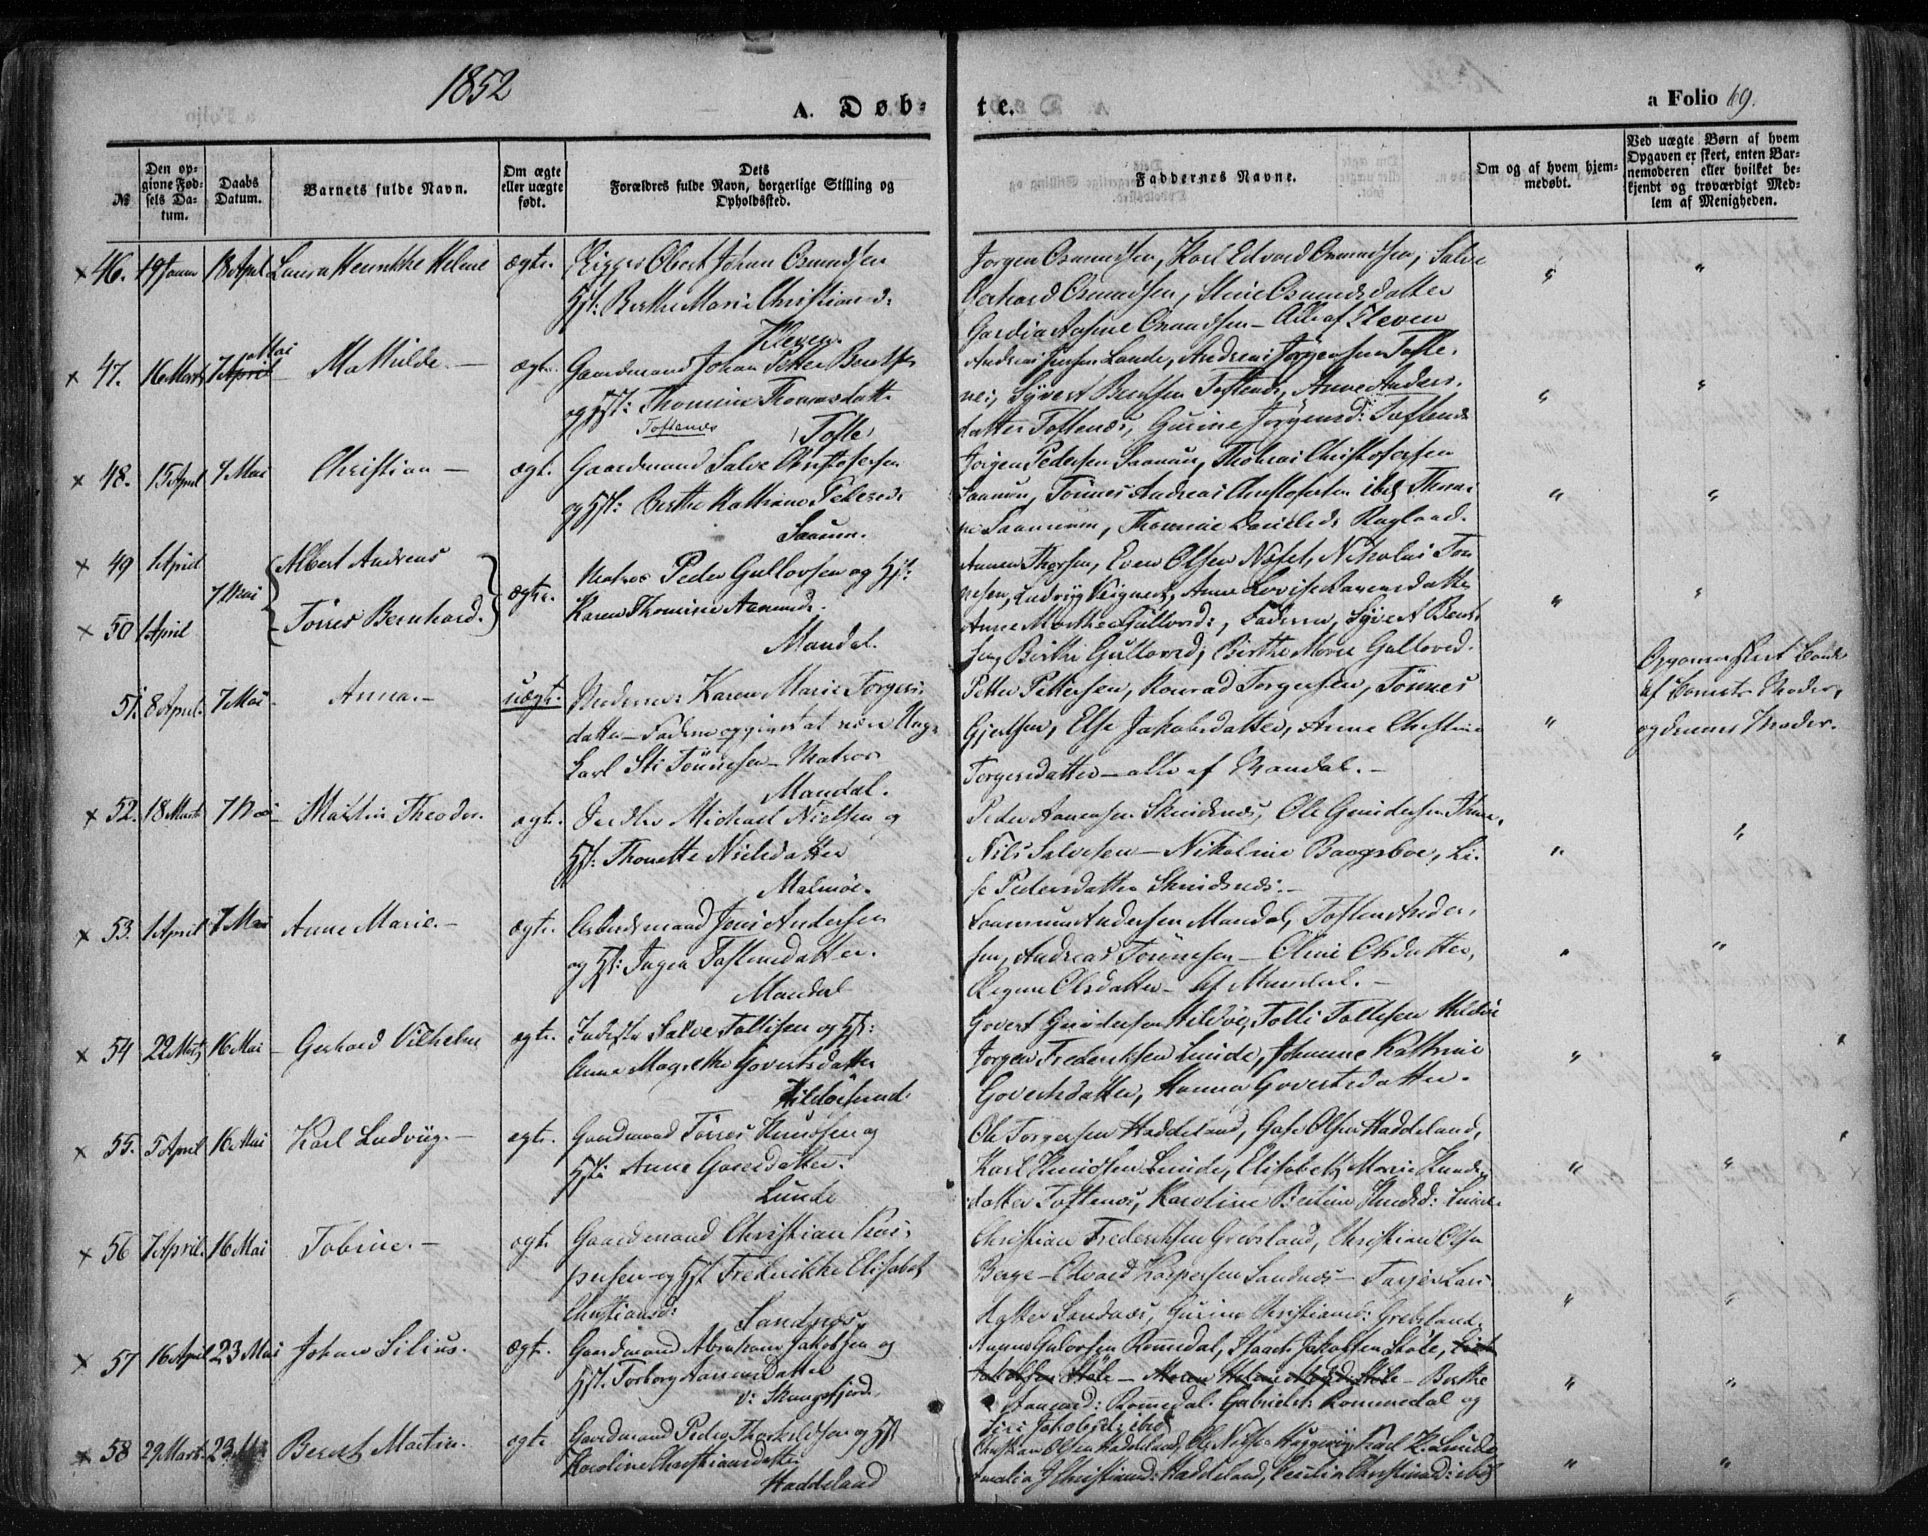 1852
A. Døb-
te.
a Folio 69.
№
Den op-
givne Fød-
sels Da-
tum.
Daabs
Datum.
Barnets fulde Navn.
Om ægte
eller uægte
født.
Dets
Forældres fulde Navn, borgerlige Stilling og
Opholdssted.
Faddernes Navne.
Om og af hvem hjem-
medøbt.
Ved uægte Børn af hvem
Opgaven er skeet, enten Bar-
nemoderen eller hvilket be-
kjendt og troværdigt Med-
lem af Menigheden.
46. 19 Januar 18 April Laura Henrikke Helene ægte.
Johan Osmundsen
Hst: Berthe Marie Christiansd:
Kleven.
Jørgen Osmundsen, Karl Edvard Osmundsen, Salve
Gerhard Osmundsen, Stine Osmundsdatter
Osmundsen – Alle af Kleven
47. 16 Marts 7 April Mai Mathilde. ægte.
Gaardmand Johan Petter Berntsen
og Hst: Thomine Thomasdatt
Toftenes Tofte
Andreas Jensen Lande, Andreas Jørgensen Tofte-
nes, Syvert Berntsen Toftenes, Anne Anders-
datter Toftenes, Gurine Jørgensd: Toftenes
48. 15 April 7 Mai Christian ægt.
Gaardmand Salve Christofersen
og Hst: Berthe Kathrine Pedersd.
Saanum.
Jørgen Pedersen Saanum, Thomas Christofersen
Saanum, Tønnes Andreas Christofersen ibd, Thomi-
ne Saanum, Thomine Danielsd. Rugland.
49 1 April Albert Andreas
7 Mai ægte.
50 1 April Tørres Bernhard.
Matros Peder Gullovsen og Hst:
Karen Thomine Aanensd.
Mandal.
Aanen Thorsen, Even Olsen Næset, Nikolai Tøn-
nesen, Ludvig Anne Lovise Aanensdatter
Anne Marthe Gullovsd:, Faderen, Syvert Bent-
sen, Berthe Gullovsd, Berthe Marie Gullovsd.
51. 8 April. 7 Mai Anna. uægte.
Moderen: Karen Marie Torgers-
datter – Faderen opgives at være Ungk.
Karl Tønnesen – Matros
Mandal.
Petter Pettersen, Konrad Torgersen, Tønnes
Gjertsen, Else Jakobsdatter, Anne Christine
Torgersdatter – alle af Mandal.
Opgaven skeet baade
af Barnets Moder,
og dennes Moder.
52. 18 Marts 7 Mai Martin Theodor. ægte.
Inderst Michael Nielsen og
Hst: Thonette Nielsdatter
Malmøe.
Peder Aanensen Skindsnes, Ole Gundersen
Nils Salvesen – Nikoline Baagsboe, Li-
se Pedersdatter Skindsnes.
53. 1 April 7 Mai Anne Marie. ægte.
Arbeidsmand Jens Andersen
og Hst: Inger Toftensdatter.
Mandal
Aanen Andersen Mandal, Tosten Ander-
sen, Andreas Tønnesen – Oline Olsdatter,
Regine Olsdatter – af Mandal.
54 22 Marts 16 Mai Gerhard Vilhelm ægte.
Inderst Salve Tollisen og Hst:
Anne Magrethe Govertsdatter
Hildøesund.
Govert Gundersen Hildøe, Tolli Tollisen Hildøe
Jørgen Frederiksen Lunde, Johanne Kathrine
Govertsdatter, Hanna Govertsdatter.
55. 5 April 16 Mai Karl Ludvig. ægte.
Gaardmand Tørres Knudsen og
Hst: Anne Gaasesdatter.
Lunde
Ole Torgersen Haddeland, Gase Olsen Haddeland,
Karl Knudsen Lunde, Elisabeth Marie Knuds-
datter Toftenes, Karoline Bertine Knudsd: Lunde.
56 7 April. 16 Mai Tobine. ægt.
Gaardmand Christian Kas-
persen og Hst Frederikke Elisabet
Christiansd:
Sandnæs
Christian Frederiksen Grevsland, Christian Olsen
Berge – Edvard Kaspersen Sandnes – Tarjer Lars-
datter Sandnæs, Gurine Christiansd: Grevsland.
57 16 April 23 Mai Johan Silius. ægte.
Gaardmand Abraham Jakobsen og
Hst. Torborg Aanensdatter
v: Skougsfjord.
Aanen Gulovsen Romedal, Isaach Jakobsen Støle,
Jakobsen Støle – Maren Helene Støle – Berthe
Aanensd: Romedal. Gabriel Rommedal og
Siri Jakobsd: ibid
58 29 Marts. 23 Mai Bernt Martin. ægte
Gaardmand Peder Thorkildsen og Hst
Karoline Christiansdatter
Haddeland
Christian Olsen Haddeland, Ole Karl K. Lunde
Amalia J Christiansd: Haddeland, Cecilie Christiansd: ibid